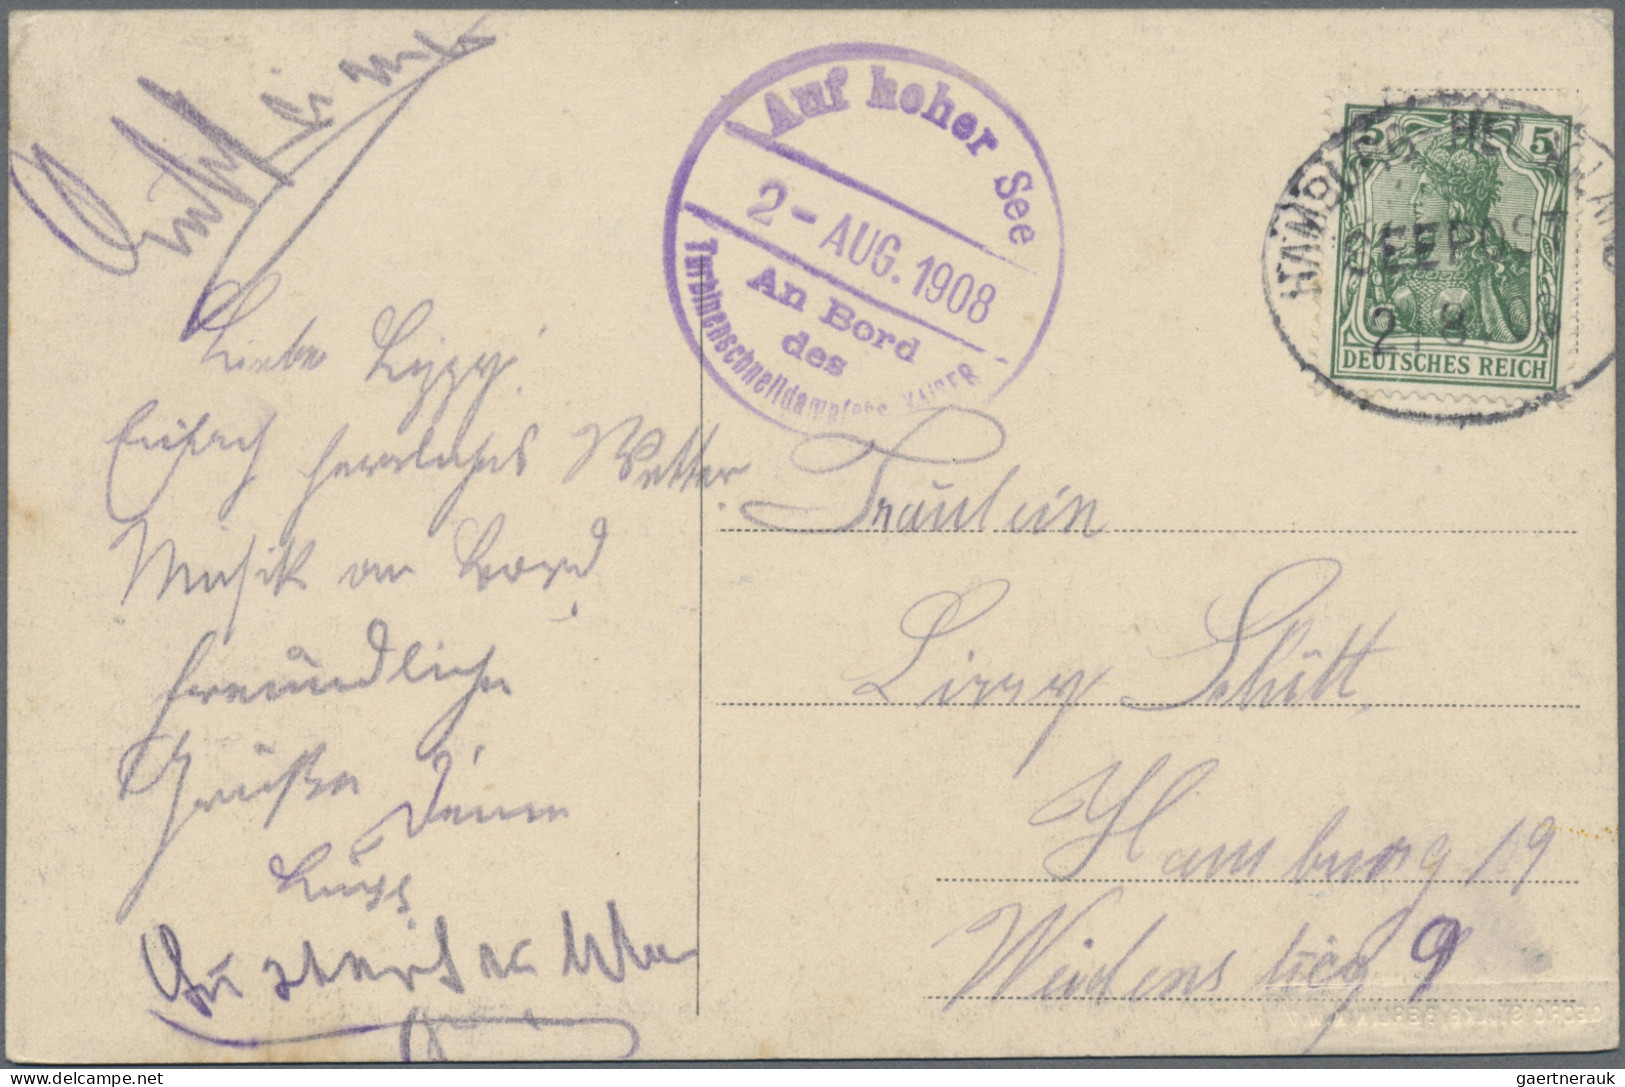 Auf hoher See
2- AUG. 1908
An Bord
des
Turbinenschnelldampfers KAISER
HAMBURG HELGOLAND
SEEPOST
2.8
5 5
DEUTSCHES REICH
Liebe Lizzy!
Einfach herrliches Wetter.
Musik an Bord
freundliche
Grüße
Deine
Fräulein
Lizzy Schütt,
Hamburg 19
Weidenstieg 9
GEORG STILKE, BERLIN N.W.7
gaertnerauk